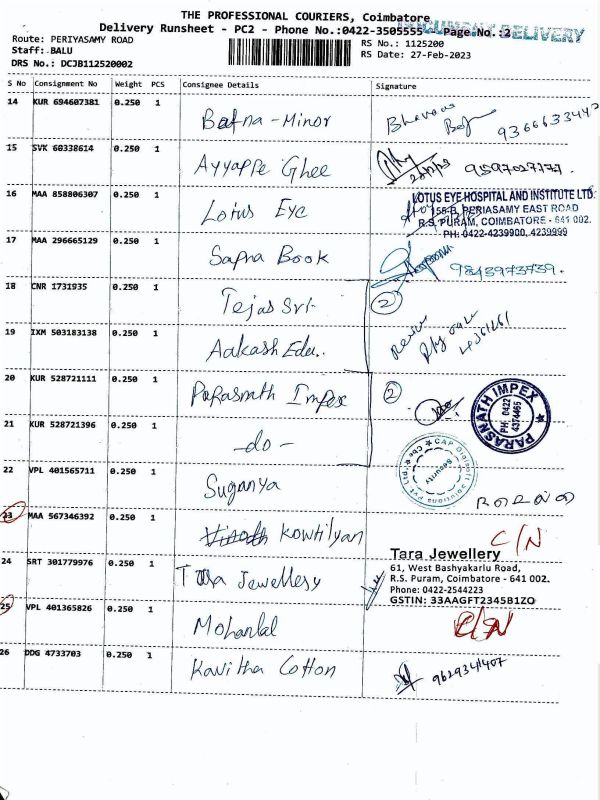 THE PROFESSIONAL COURIERS, Coimbatore
DOCUMENT DELIVERY
Delivery Runsheet - PC2 - Phone No.:0422-3505555 - Page No.:2
Route: PERIYASAMY ROAD
RS No.: 1125200
Staff: BALU
RS Date: 27-Feb-2023
DRS No.: DCJB112520002
S No Consignment No Weight PCS Consignee Details Signature
14 KUR 694607381 0.250 1 Bafna-Minor
15 SVK 60338614 0.250 1 Ayyappe Ghee 9597027777.
16 MAA 858806307 0.250 1 Lotus Eye
LOTUS EYE HOSPITAL AND INSTITUTE LTD.
155-B, PERIASAMY EAST ROAD
R.S. PURAM, COIMBATORE - 641 002.
PH: 0422-4239900, 4239999
17 MAA 296665129 0.250 1 Sapna Book 9843973739.
18 CNR 1731935 0.250 1 Tejas Sri- 2
19 IXM 503183138 0.250 1 Aakash Edu..
20 KUR 528721111 0.250 1 Parasnath Impex 2
PARASNATH IMPEX
PH: 0422
4374465
21 KUR 528721396 0.250 1 -do-
Security
22 VPL 401565711 0.250 1 Suganya
23 MAA 567346392 0.250 1 Kowtilyan C/N
24 SRT 301779976 0.250 1 Tara Jewellery
Tara Jewellery
61, West Bashyakarlu Road,
R.S. Puram, Coimbatore - 641 002.
Phone: 0422-2544223
GSTIN: 33AAGFT2345B1ZO
25 VPL 401365826 0.250 1 Mohanlal C/N
26 DDG 4733703 0.250 1 Kavitha Cotton 9629341407